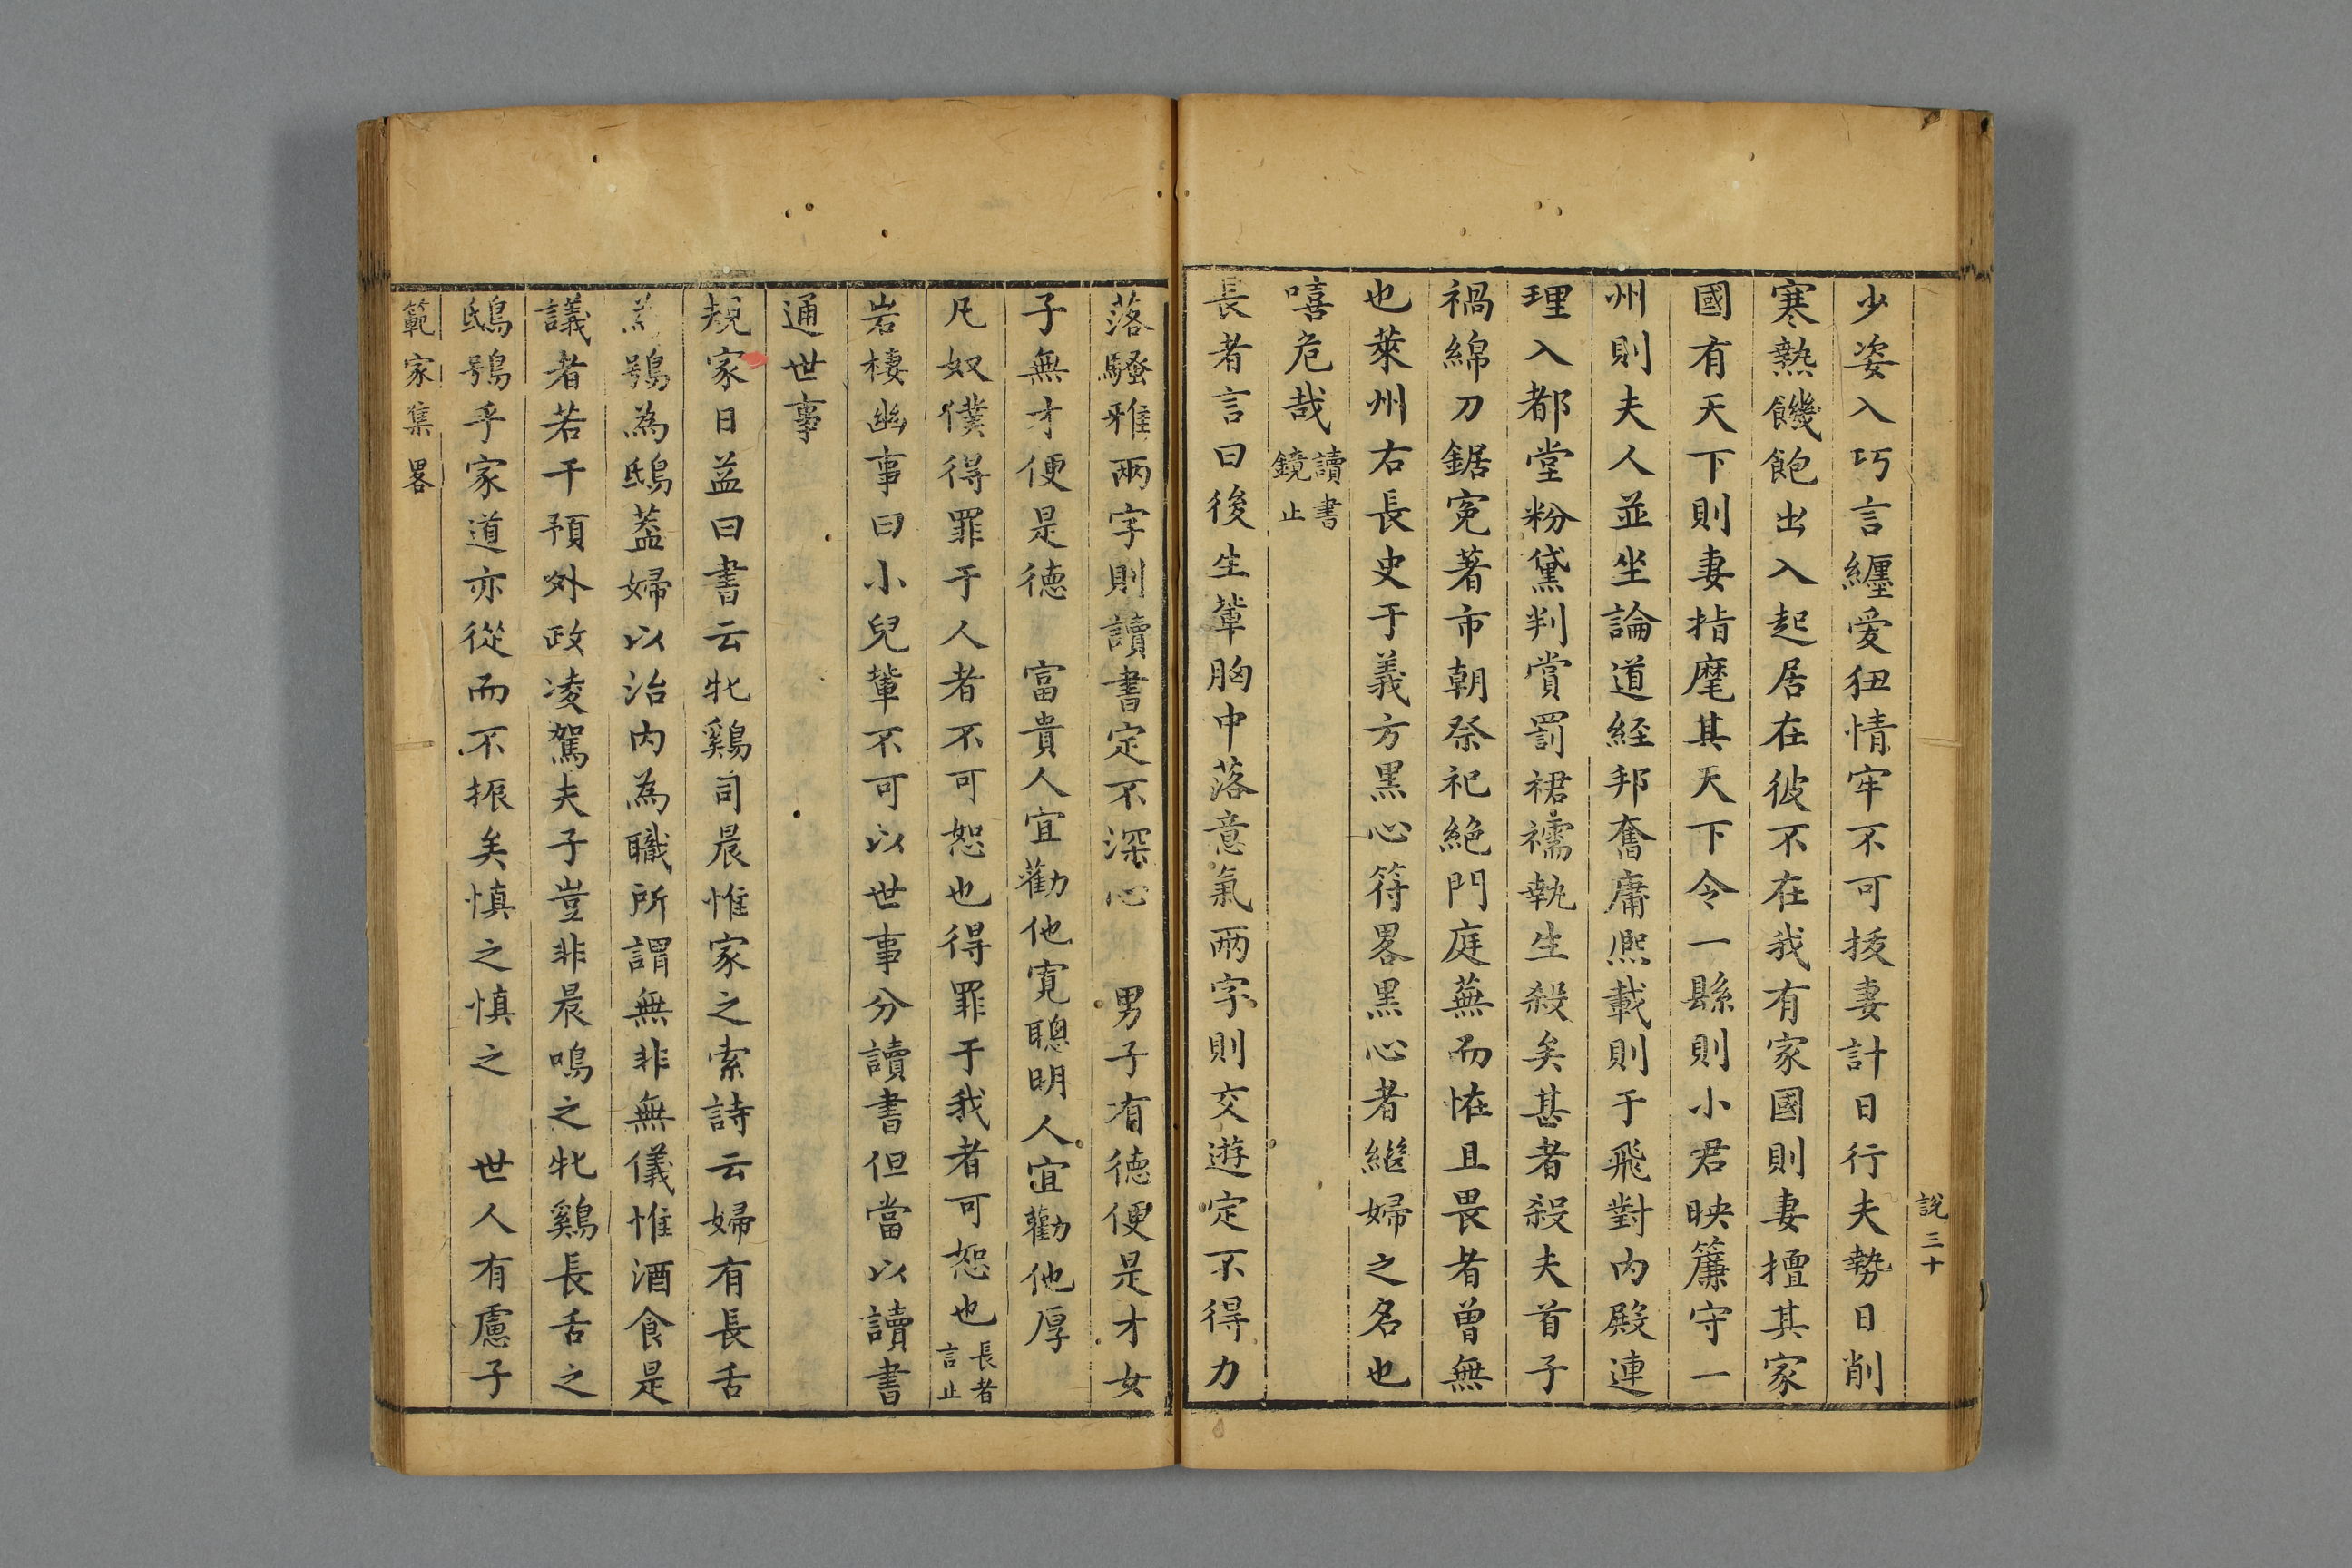 說 三十
少姿入巧言纏愛狃情牢不可拔妻計日行夫勢日削
寒熱饑飽出入起居在彼不在我有家國則妻擅其家
國有天下則妻指麾其天下令一縣則小君映簾守一
州則夫人並坐論道經邦奮庸熈載則于飛對內殿連
理入都堂粉黛判賞罰裙襦執生殺矣甚者殺夫首子
禍綿刀鋸寃著市朝祭祀絶門庭蕪而恠且畏者曽無
也萊州右長史于義方黒心符畧黒心者繼婦之名也
嘻危哉讀書鏡止
長者言曰後生輩胸中落意氣兩字則交遊定不得力
落騷雅兩字則讀書定不深心 男子有德便是才女
子無才便是德 富貴人宜勸他寛聰明人宜勸他厚
凡奴僕得罪于人者不可恕也得罪于我者可恕也長者言止
岩棲幽事曰小兒輩不可以世事分讀書但當以讀書
通世事
規家日益曰書云牝鷄司晨惟家之索詩云婦有長舌
為鴞為鴟葢婦以治内為職所謂無非無儀惟酒食是
議者若干預外政凌駕夫子豈非晨鳴之牝鷄長舌之
鴟鴞乎家道亦從而不振矣慎之慎之 世人有慮子
範家集畧